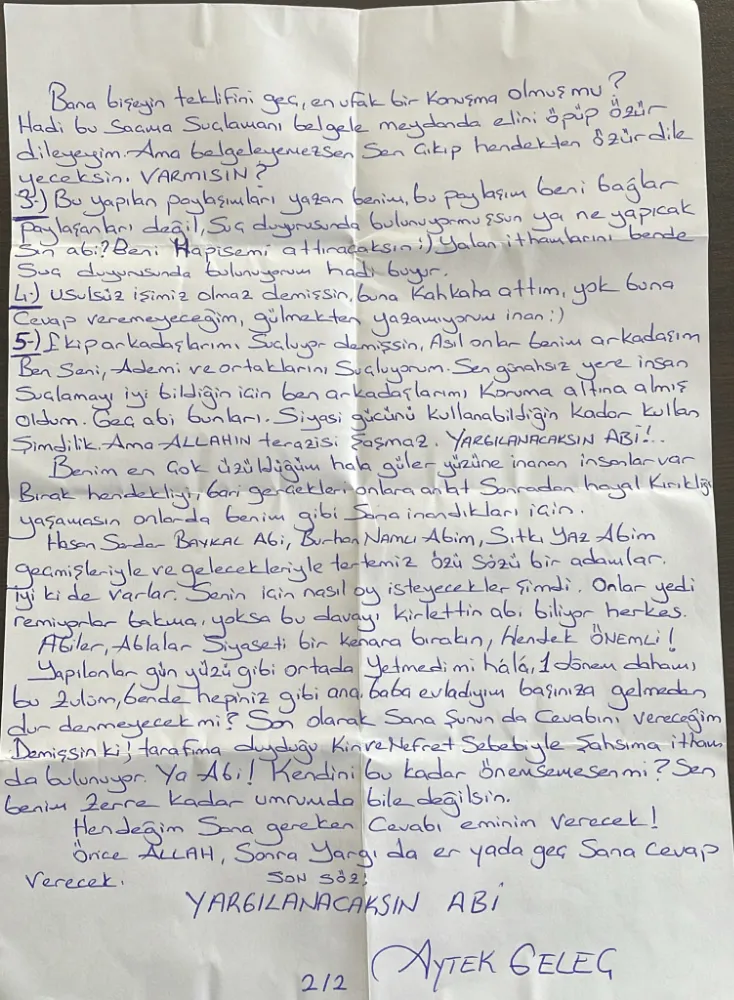 Bana bişeyin teklifini geç, en ufak bir konuşma olmuş mu?
Hadi bu saçma suçlamanı belgele meydanda elini öpüp özür
dileyeyim. Ama belgeleyemezsen sen çıkıp hendekten özür dile
yeceksin. VARMISIN?
3-) Bu yapılan paylaşımları yazan benim, bu paylaşım beni bağlar
Paylaşanları değil, Suç duyurusunda bulunuyormuşsun ya ne yapıcak
sın abi? Beni Hapisemi attıracaksın :) Yalan ithamlarını bende
Suç duyurusunda bulunuyorum hadi buyur.
4-) usulsüz işimiz olmaz demişsin, buna Kahkaha attım, yok buna
Cevap veremeyeceğim, gülmekten yazamıyorum inan :)
5-) Ekip arkadaşlarımı Suçluyor demişsin, Asıl onlar benim arkadaşım
Ben Seni, Ademi ve ortaklarını Suçluyorum. Sen günahsız yere insan
Suçlamayı iyi bildiğin için ben arkadaşlarımı Koruma altına almış
oldum. Geç abi bunları. Siyasi gücünü kullanabildiğin kadar kullan
Şimdilik. Ama ALLAHIN terazisi Şaşmaz. YARGILANACAKSIN ABİ!..
Benim en çok üzüldüğüm hala güler yüzüne inanan insanlar var
Bırak hendekliyi, bari gerçekleri onlara anlat Sonradan hayal Kırıklığı
yaşamasın onlarda benim gibi Sana inandıkları için.
Hasan Serdar BAYKAL Abi, Burhan NAMLI Abim, Sıtkı YAZ Abim
geçmişleriyle ve gelecekleriyle tertemiz özü sözü bir adamlar.
iyi ki de varlar. Senin için nasıl oy isteyecekler Şimdi. Onlar yedi
remiyorlar bakma, yoksa bu davayı Kirlettin abi biliyor herkes.
Abiler, Ablalar Siyaseti bir kenara bırakın, Hendek ÖNEMLİ!
Yapılanlar gün yüzü gibi ortada Yetmedi mi hâlâ, 1 dönem dahamı
bu Zulüm, bende hepiniz gibi ana, baba evladıyım başınıza gelmeden
dur denmeyecek mi? Son olarak Sana Şunun da Cevabını vereceğim
Demişsin ki; tarafıma duyduğu Kin ve Nefret Sebebiyle Şahsıma itham
da bulunuyor. Ya Abi! Kendini bu kadar önemsemesen mi? Sen
benim Zerre kadar umrumda bile değilsin.
Hendeğim Sana gereken Cevabı eminim verecek!
Önce ALLAH, Sonra Yargı da er yada geç Sana Cevap
verecek. SON SÖZ;
YARGILANACAKSIN ABİ
AYTEK GELEÇ
2/2